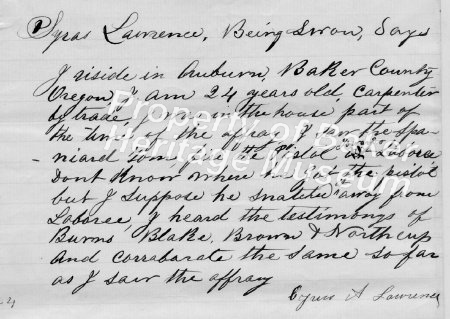 Syras Lawrence, Being Swon, Says
I riside in Auburn, Baker County
Oregon, I am 24 years old, carpenter
by trade I was in the house part of
the time of the affray I saw the Spa-
niard the pistol Laboree
Dont Know where he got the pistol
but I suppose he snatched away from
Laboree, I heard the testimonys of
Burns, Blake, Brown & Northcup
And corrabarate the same so far
as I saw the affray
Cyrus A Lawrence
Property of Baker
Heritage Museum